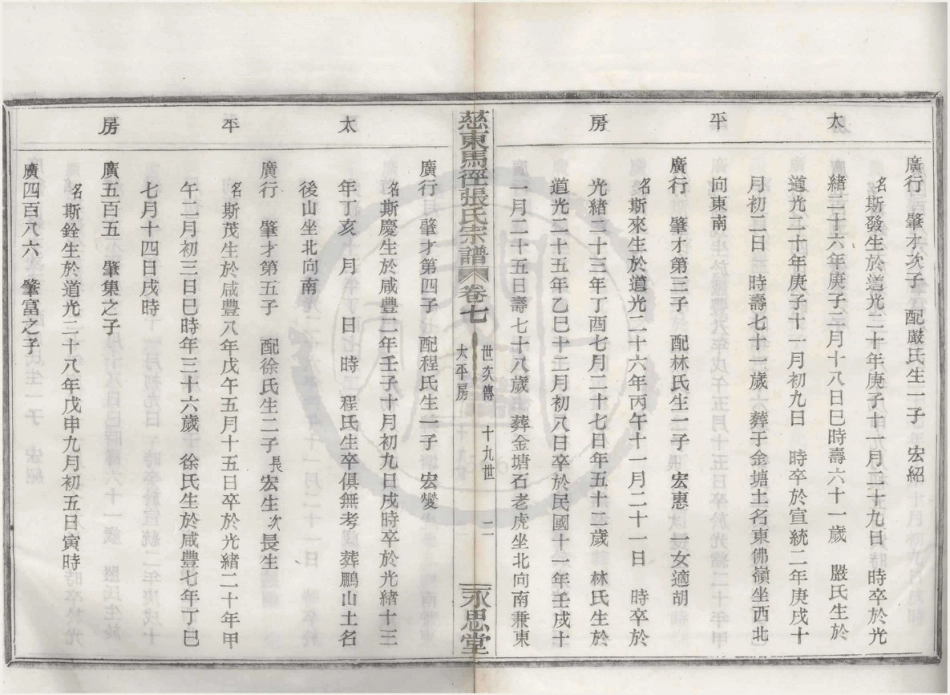 太平房
廣行　肇才次子　配嚴氏生一子　宏紹
名斯發生於道光二十年庚子十一月二十九日　時卒於光
緒二十六年庚子三月十八日巳時壽六十一歲　嚴氏生於
道光二十年庚子十一月初九日　時卒於宣統二年庚戌十
月初二日　時壽七十一歲　葬于金塘土名東佛嶺坐西北
向東南
廣行　肇才第三子　配林氏生一子　宏惠　一女適胡
名斯來生於道光二十六年丙午十一月二十一日　時卒於
光緒二十三年丁酉七月二十七日年五十二歲　林氏生於
道光二十五年乙巳十二月初八日卒於民國十一年壬戌十
一月二十五日壽七十八歲　葬金塘石老虎坐北向南兼東
慈東馬徑張氏宗譜　卷七　世次傳　太平房　十九世　二　永思堂
太平房
廣行　肇才第四子　配程氏生一子　宏燮
名斯慶生於咸豐二年壬子十月初九日戌時卒於光緒十三
年丁亥　月　日　時　程氏生卒俱無考　葬鵬山土名
後山坐北向南
廣行　肇才第五子　配徐氏生二子長宏生次長生
名斯茂生於咸豐八年戊午五月十五日卒於光緒二十年甲
午二月初三日巳時年三十六歲　徐氏生於咸豐七年丁巳
七月十四日戌時
廣五百五　肇集之子
名斯銓生於道光二十八年戊申九月初五日寅時
廣四百八六　肇富之子